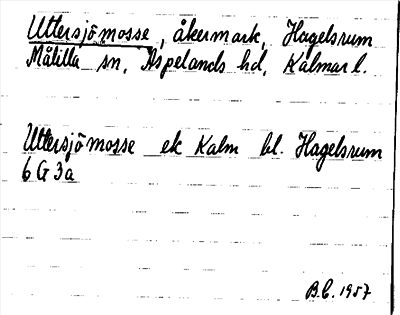 Uttersjömosse, åkermark, Hagelsrum
Målilla sn, Aspelands hd, Kalmar l.
Uttersjömosse ek Kalm bl. Hagelsrum
6 G 3a
B.C. 1957